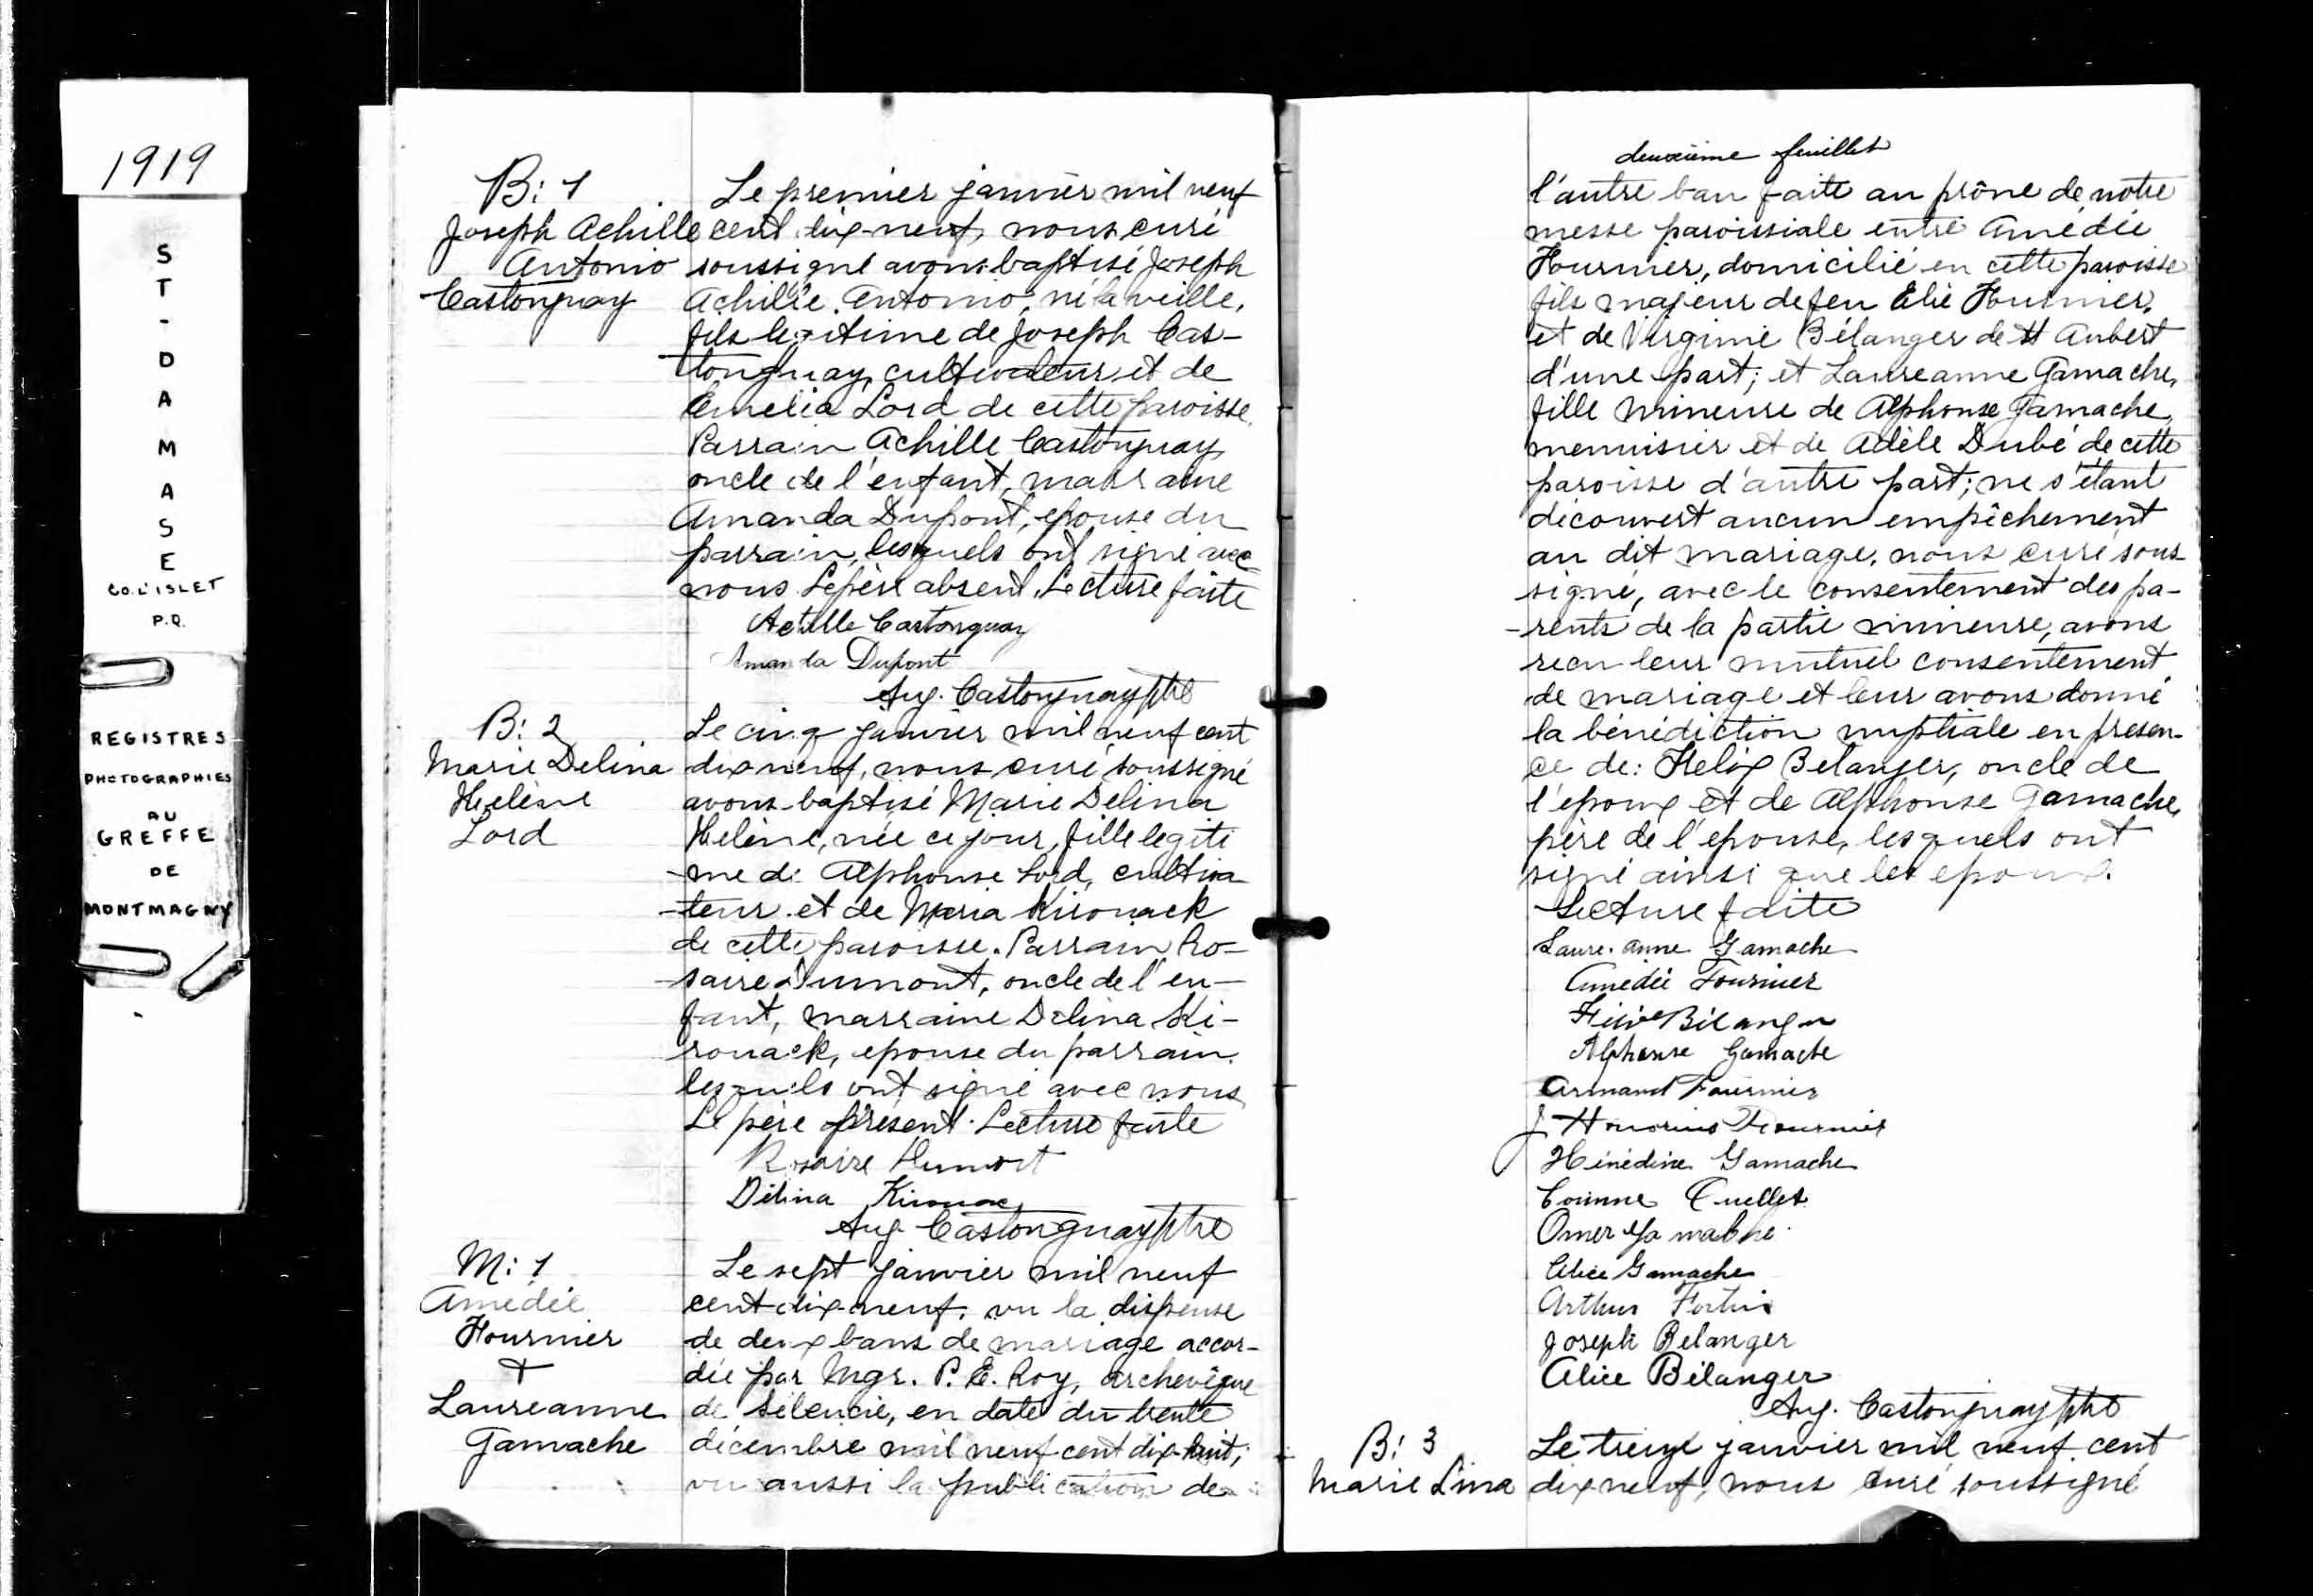 1919
ST-DAMASE
CO. L'ISLET
P.Q.
REGISTRES
PHOTOGRAPHIES
AU
GREFFE
DE
MONTMAGNY
B: 1
Joseph Achille
Antonio
Castonguay
Le premier janvier mil neuf
cent dix-neuf, nous curé
soussigné avons baptisé Joseph
Achille Antonio, né la veille,
fils legitime de Joseph Cas-
tonguay, cultivateur et de
Emelia Lord de cette paroisse.
Parrain Achille Castonguay
oncle de l'enfant, marraine
Amanda Dupont, epouse du
parrain, lesquels ont signé avec
nous Le père absent. Lecture faite
Achille Castonguay
Amanda Dupont
Aug. Castonguay ptre
B: 2
Marie Delina
Helène
Lord
Le cinq janvier mil neuf cent
dix neuf, nous curé soussigné
avons baptisé Marie Delina
Helène, née ce jour, fille legiti
-me de Alphonse Lord, cultiva
-teur et de Maria Kirouack
de cette paroisse. Parrain Ro-
saire Dumont, oncle de l'en-
fant, marraine Delina Ki-
rouack, epouse du parrain.
lesquels ont signé avec nous
Le père présent. Lecture faite
Rosaire Dumont
Délina Kirouac
Aug. Castonguay ptre
M: 1
Amédée
Fournier
+
Laureanne
Gamache
Le sept janvier mil neuf
cent dix-neuf, vu la dispense
de deux bans de mariage accor-
dée par Mgr. P. E. Roy, archevêque
de Séleucie, en date du trente
décembre mil neuf cent dix-huit;
vu aussi la publication de
deuxième feuillet
l'autre ban faite au prône de notre
messe paroissiale entre Amédée
Fournier, domicilié en cette paroisse
fils majeur de feu Elie Fournier,
et de Virginie Bélanger de St Aubert
d'une part; et Laureanne Gamache,
fille mineure de Alphonse Gamache,
menuisier et de Adèle Dubé de cette
paroisse d'autre part; ne s'étant
découvert aucun empêchement
au dit mariage, nous curé sous-
signé, avec le consentement des pa-
-rents de la partie mineure, avons
recu leur mutuel consentement
de mariage et leur avons donné
la bénédiction nuptiale en presen-
ce de: Felix Belanger, oncle de
l'epoux et de Alphonse Gamache,
père de l'epouse, lesquels ont
signé ainsi que les epoux.
Lecture faite
Laure-anne Gamache
Amedée Fournier
Bélanger
Alphonse Gamache
Armand Fournier
J Honorius Fournier
Hénédine Gamache
Corinne Ouellet
Omer Gamache
Alice Gamache
Arthur Fortin
Joseph Belanger
Alice Bélanger
Aug. Castonguay ptre
B: 3
Marie Lina
Le treize janvier mil neuf cent
dix neuf, nous curé soussigné